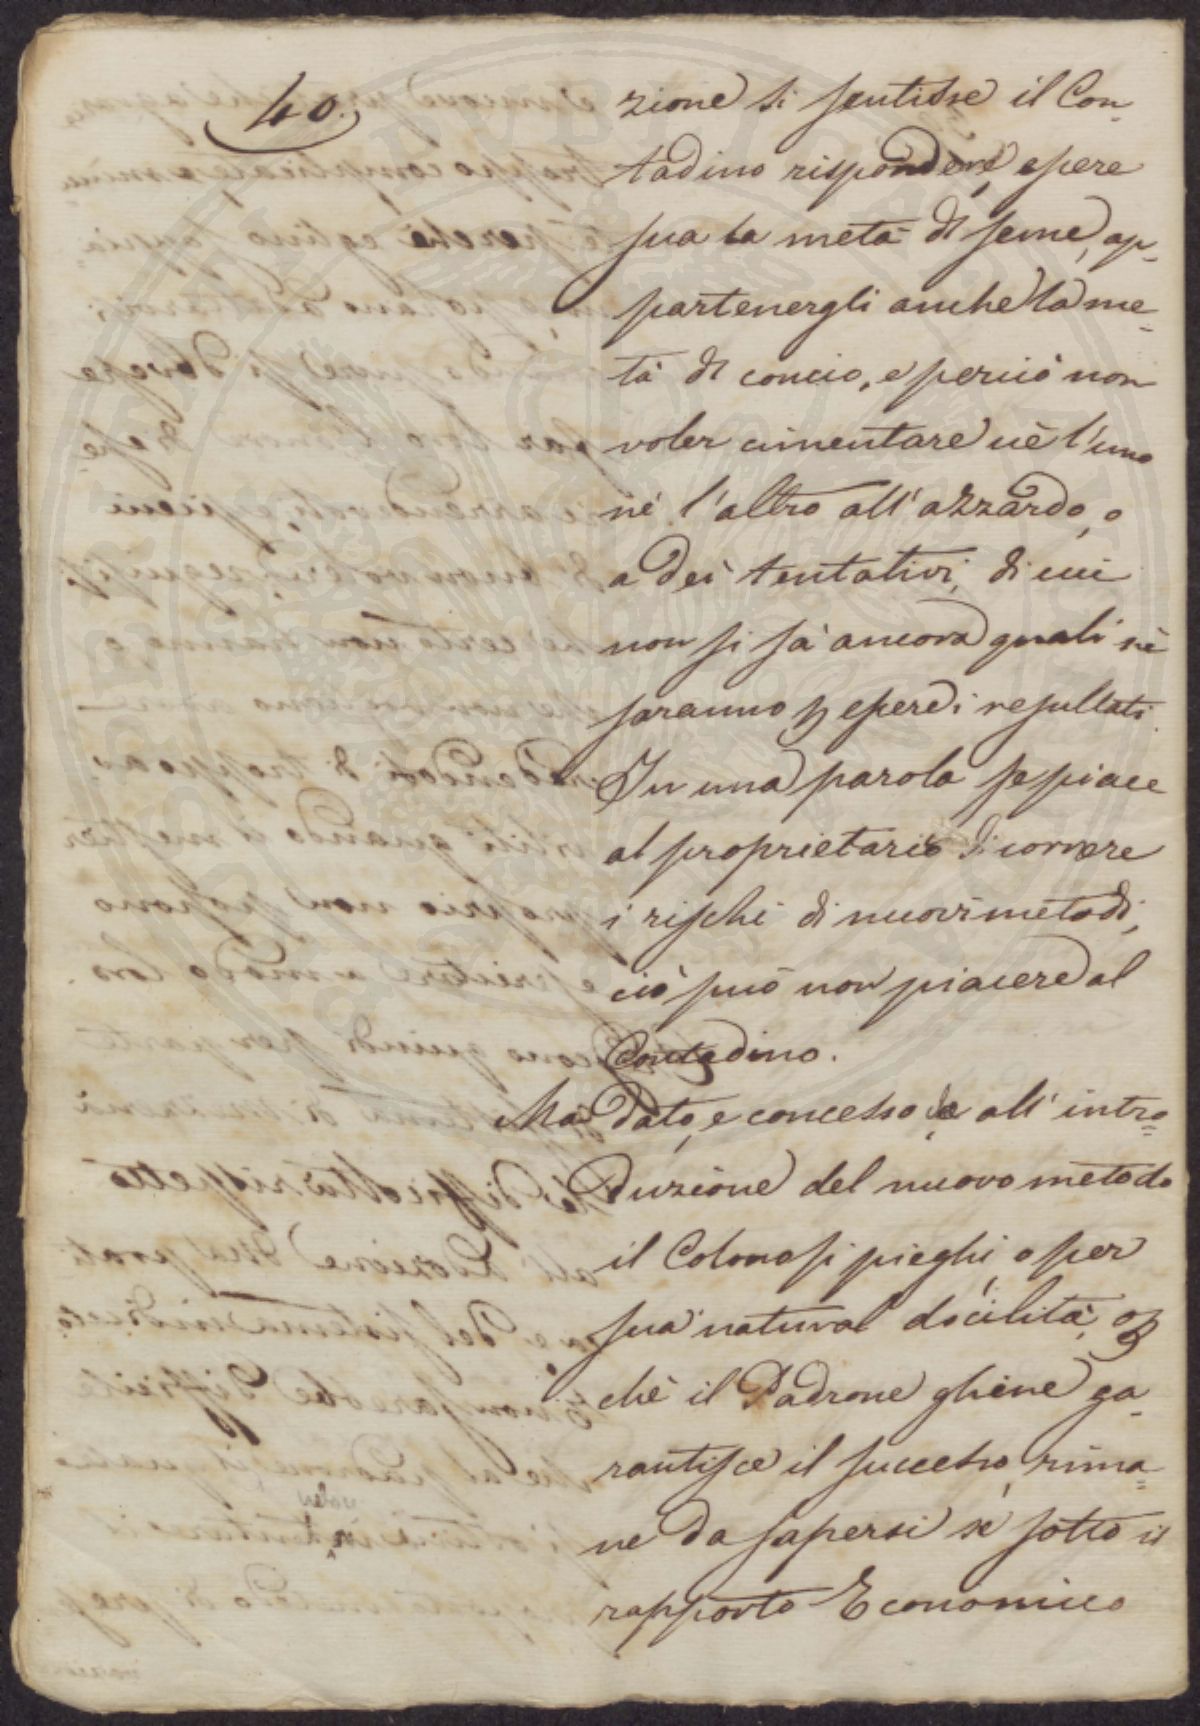 40.
zione si sentisse il Con-
tadino rispondere essere
sua la metà di seme, ap-
partenergli anche la me-
tà di concio, e perciò non
voler cimentare nè l'uno
nè l'altro all'azzardo, o
a dei tentativi, di cui
non si sà ancora quali ne
saranno p essere i resultati.
In una parola se piace
al proprietario di correre
i rischi di nuovi metodi,
ciò può non piacere al
Contadino.
Ma dato, e concesso all' intro-
duzione del nuovo metodo
il Colono si pieghi, o per
sua natural docilità, o p
chè il Padrone ghène ga-
rantisce il successo, rima-
ne da sapersi sè sotto il
rapporto Economico